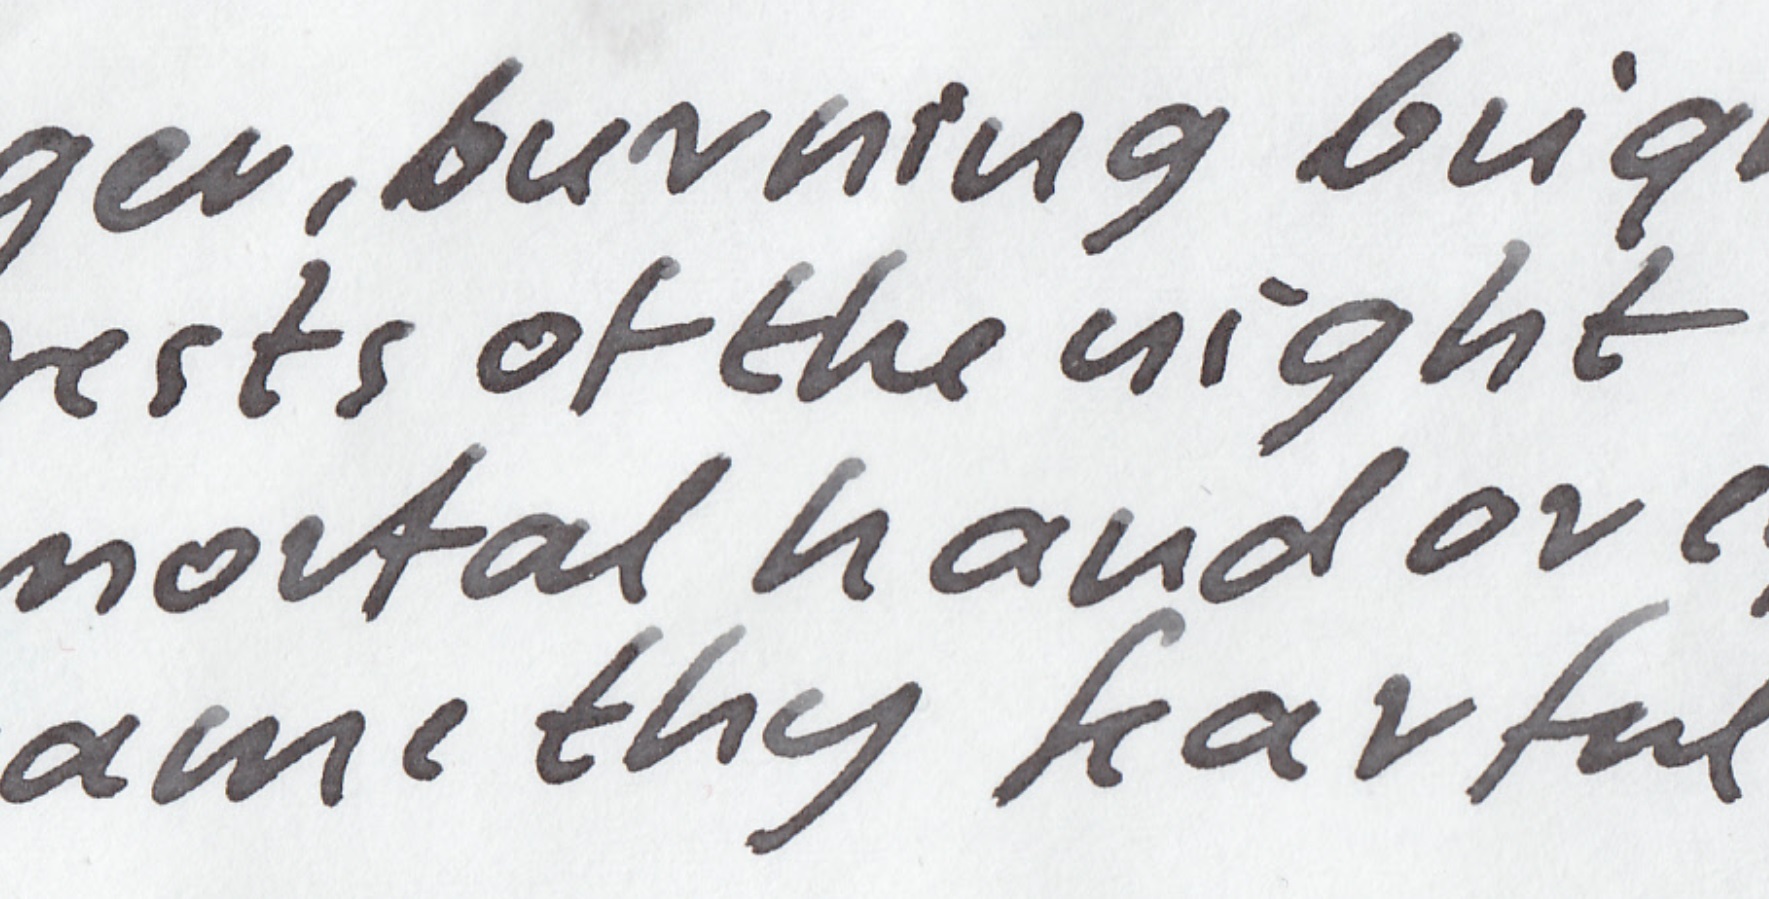 ger, burning brigh
rests of the night
mortal hand or ey
ame thy fearful